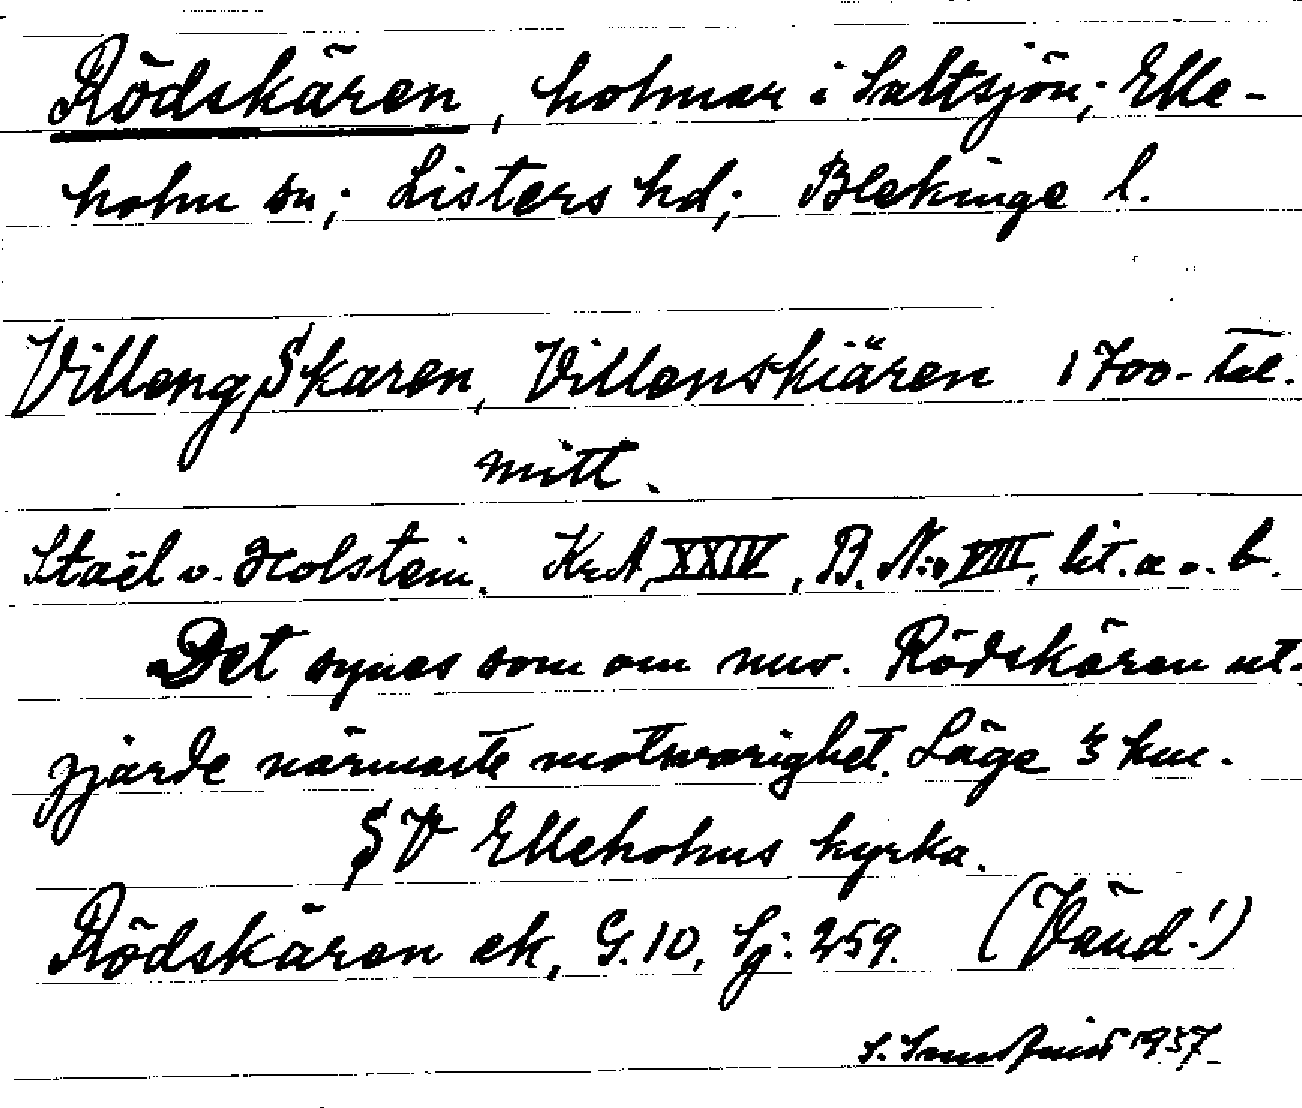 Rödskären, holmar i Saltsjön; Elle-
holm sn; Listers hd; Blekinge l.
Villeng, Skaren, Villenskiären 1700-tal.
mitt.
Staël v. Holstein. KrA XXIV, B. N:o VIII, lit. a o. b.
Det synes som om nuv. Rödskären ut-
gjorde närmaste motsvarighet. Läge 3 km.
SV Elleholms kyrka.
Rödskären ek, G. 10, Sg: 259. (Vänd!)
S. 1937